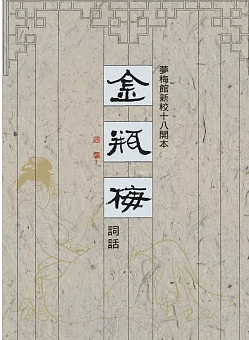 夢梅館新校十八開本
金瓶梅
詞話